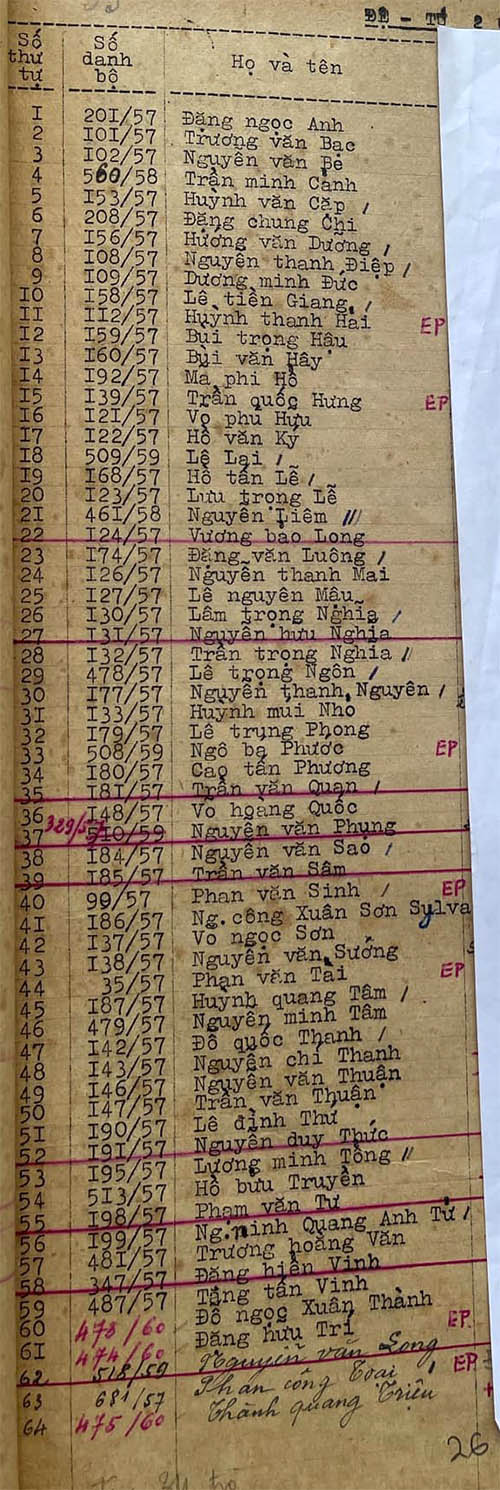 ĐỆ - TỬ 2
Số thứ tự | Số danh bộ | Họ và tên
I 20I/57 Đặng ngọc Anh
2 I0I/57 Trương văn Bạc
3 I02/57 Nguyễn văn Bé
4 560/58 Trần minh Cảnh
5 I53/57 Huỳnh văn Cặp /
6 208/57 Đặng chung Chi
7 I56/57 Hướng văn Dưỡng /
8 I08/57 Nguyễn thanh Điệp /
9 I09/57 Dương minh Đức
I0 I58/57 Lê tiền Giang /
II II2/57 Huỳnh thanh Hải EP
I2 I59/57 Bùi trọng Hậu
I3 I60/57 Bùi văn Hây
I4 I92/57 Mạ phi Hổ
I5 I39/57 Trần quốc Hưng EP
I6 I2I/57 Vo phú Hựu
I7 I22/57 Hồ văn Ký
I8 509/59 Lê Lai /
I9 I68/57 Hồ tấn Lễ /
20 I23/57 Lưu trọng Lễ
2I 46I/58 Nguyễn Liêm //
22 I24/57 Vương bảo Long
23 I74/57 Đặng văn Luông /
24 I26/57 Nguyễn thanh Mai
25 I27/57 Lê nguyên Mậu
26 I30/57 Lâm trọng Nghĩa /
27 I3I/57 Nguyễn hưu Nghĩa
28 I32/57 Trần trọng Nghĩa //
29 478/57 Lê trọng Ngôn /
30 I77/57 Nguyễn thanh Nguyên /
3I I33/57 Huỳnh mui Nho
32 I79/57 Lê trung Phong
33 508/59 Ngô bá Phước EP
34 I80/57 Cao tấn Phượng
35 I8I/57 Trần văn Quan /
36 I48/57 Vo hoàng Quốc
37 329/57 5I0/59 Nguyễn văn Phụng
38 I84/57 Nguyễn văn Sao /
39 I85/57 Trần văn Sâm
40 99/57 Phan văn Sinh / EP
4I I86/57 Ng. công Xuân Sơn Sylva
42 I37/57 Vo ngọc Sơn
43 I38/57 Nguyễn văn Sương
44 35/57 Phạn văn Tài EP
45 I87/57 Huỳnh quang Tâm /
46 479/57 Nguyễn minh Tâm
47 I42/57 Đỗ quốc Thanh /
48 I43/57 Nguyễn chí Thanh
49 I46/57 Nguyễn văn Thuận
50 I47/57 Trần văn Thuận
5I I90/57 Lê đình Thư
52 I9I/57 Nguyễn duy Thức
53 I95/57 Lương minh Tông //
54 5I3/57 Hồ bửu Truyền
55 I98/57 Phạm văn Tư
56 I99/57 Ng. ninh Quang Anh Tử /
57 48I/57 Trương hoàng Văn
58 347/57 Đặng hiển Vinh
59 487/57 Tăng tấn Vinh
60 473/60 Đỗ ngọc Xuân Thành
6I 474/60 Đặng hưu Trí EP
62 518/59 Nguyễn văn Long
63 681/57 Phan công Toai / EP
64 475/60 Thành quang Triệu
26